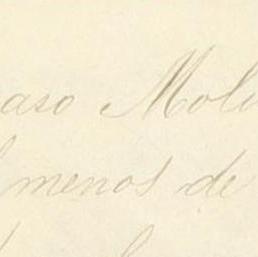 aso Moli
menos de